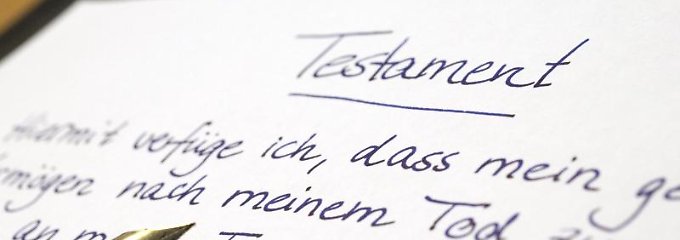 Testament
Hiermit verfüge ich, dass mein ge
mögen nach meinem Tod
an m